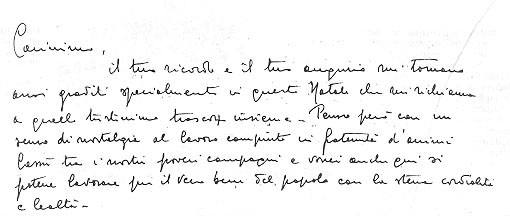 Carissimo,
il tuo ricordo e il tuo augurio mi tornano
assai graditi specialmente in questo Natale che mi richiama
a quell' tristissimo trascorso insieme - Penso però con un
senso di nostalgia al lavoro compiuto in fraternità d'animi
lassù tra i nostri poveri compagni e vorrei anche qui si
potesse lavorare per il vero bene del popolo con la stessa cordialità
e lealtà -